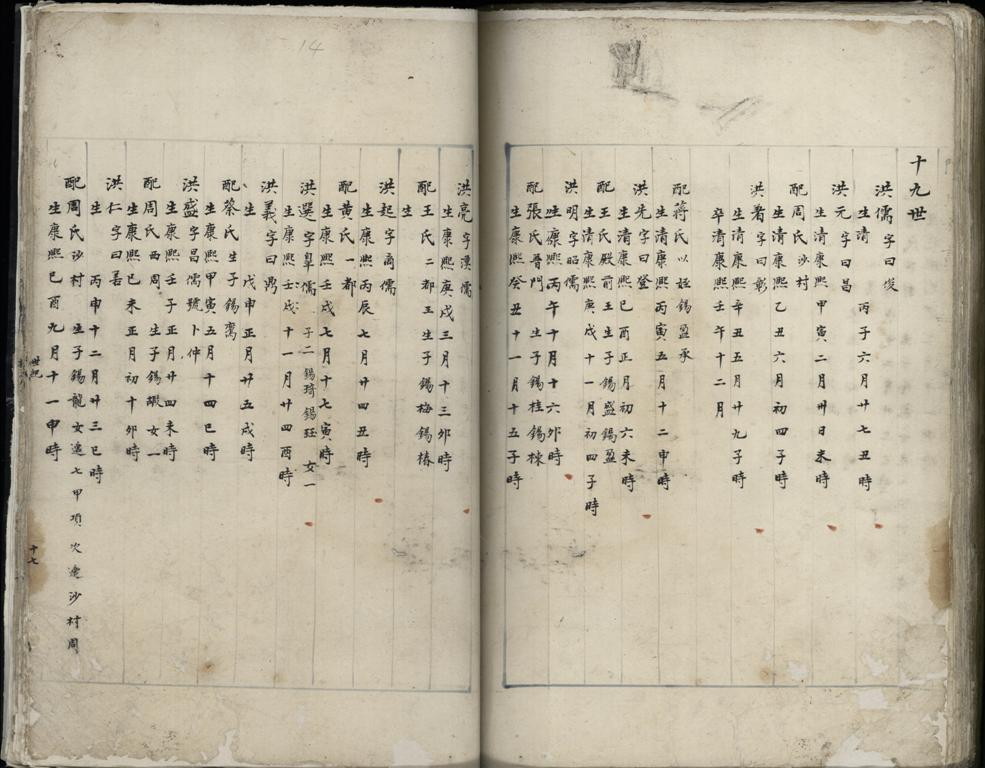 十九世
洪儒字曰俊
生清 丙子六月廿七丑時
洪元字曰昌
生清康熙甲寅二月卅日未時
配周氏沙村
生清康熙乙丑六月初四子時
洪着字曰彰
生清康熙辛丑五月廿九子時
卒清康熙壬午十二月
配蔣氏以姪錫盈承
生清康熙丙寅五月十二申時
洪先字曰登
生清康熙己酉正月初六未時
配王氏殿前王生子錫盛錫盈
生清康熙庚戌十一月初四子時
洪明字昭儒
生康熙丙午十月十六卯時
配張氏晋門 生子錫桂錫棟
生康熙癸丑十一月十五子時
洪亮字漢儒
生康熙庚戌三月十三卯時
配王氏二都王生子錫梅錫椿
生
洪起字商儒
生康熙丙辰七月廿四丑時
配黃氏一都
生康熙壬戌七月十七寅時
洪選字皐儒 子二錫琦錫珏 女一
生康熙壬戌十一月廿四酉時
洪義字曰鼎
生 戊申正月廿五戌時
配蔡氏生子錫鸞
生康熙甲寅五月十四巳時
洪盛字昌儒號卜仲
生康熙壬子正月廿四未時
配周氏西周 生子錫嘏女一
生康熙己未正月初十卯時
洪仁字曰善
生 丙申十二月廿三巳時
配周氏沙村 生子錫龍女適七甲項次適沙村周
生康熙己酉九月十一申時
世紀
十七
14